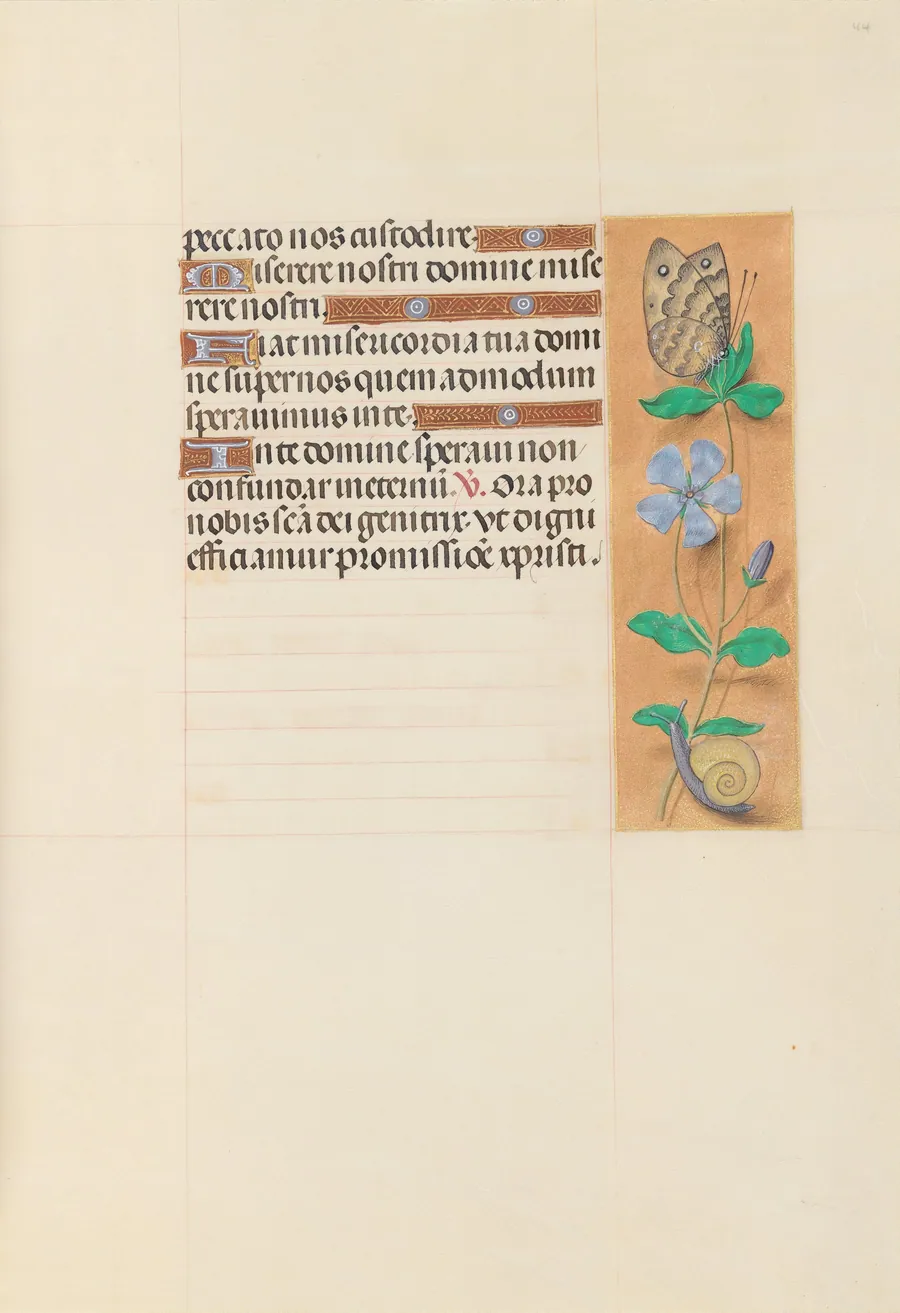 44
peccato nos custodire.
Miserere nostri domine mise
rere nostri.
Fiat misericordia tua domi
ne super nos quemadmodum
speravimus in te.
In te domine speravi non
confundar in eternū. V̄. Ora pro
nobis scā dei genitrix. vt digni
efficiamur promissiōe xpristi.